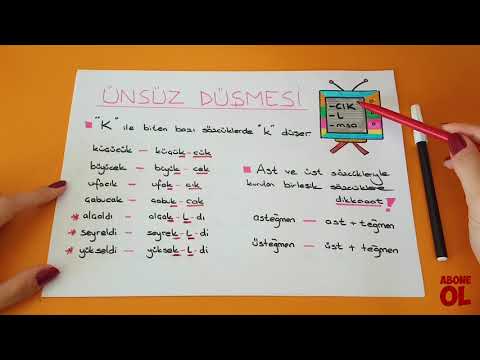 ÜNSÜZ DÜŞMESİ
"K" ile biten bazı sözcüklerde "k" düşer.
küçücük — küçük - cük
büyücek — büyük - cek
ufacık — ufak - cık
çabucak — çabuk - cak
* alçaldı — alçak - L - di
* seyreldi — seyrek - L - di
* yükseldi — yüksek - L - di
-CIK
-L
-msa
Ast ve üst sözcükleriyle
kurulan birleşik sözcüklere
dikkaaat!
asteğmen — ast + teğmen
üsteğmen — üst + teğmen
ABONE
OL